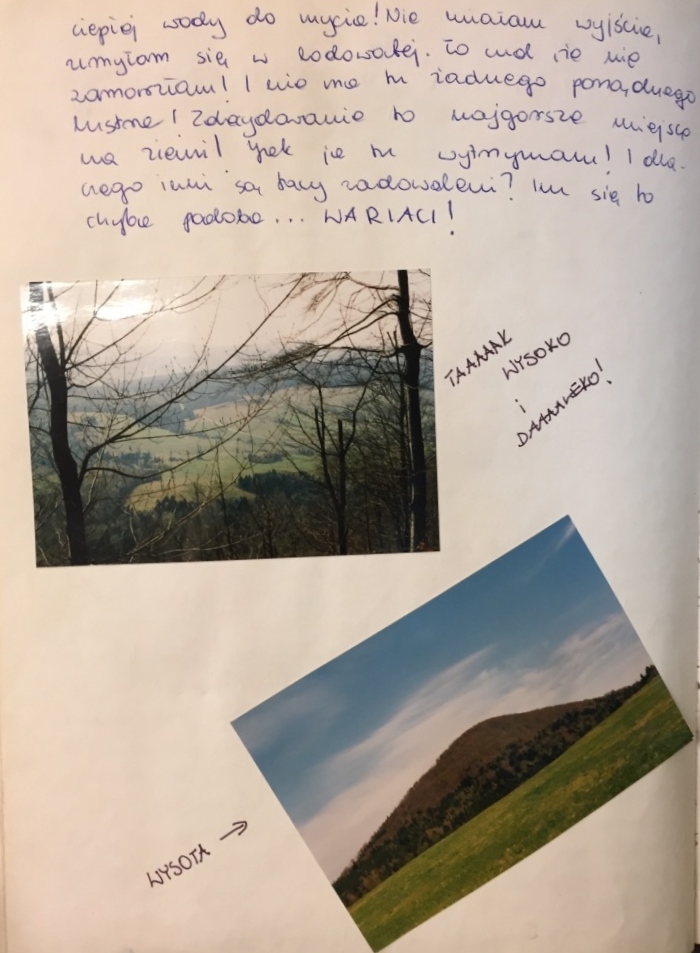 ciepłej wody do mycia! Nie miałam wyjścia,
umyłam się w lodowatej. To cud, że nie
zamarzłam! I nie ma tu żadnego porządnego
lustra! Zdecydowanie to najgorsze miejsce
na ziemi! Jak ja tu wytrzymam! I dla-
czego inni są tacy zadowoleni? Im się to
chyba podoba... WARIACI!
TAAAAAK
WYSOKO
i
DAAAALEKO!
WYSOTA →